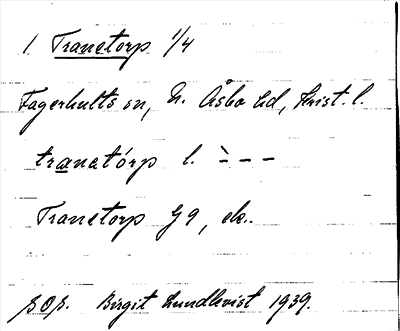 1 Tranetorp 1/4
Fagerhults sn, N. Åsbo hd, Krist. l.
tranatórp l. ̀ – – –
Tranetorp J9, ek.
Birgit Lundkvist 1939.